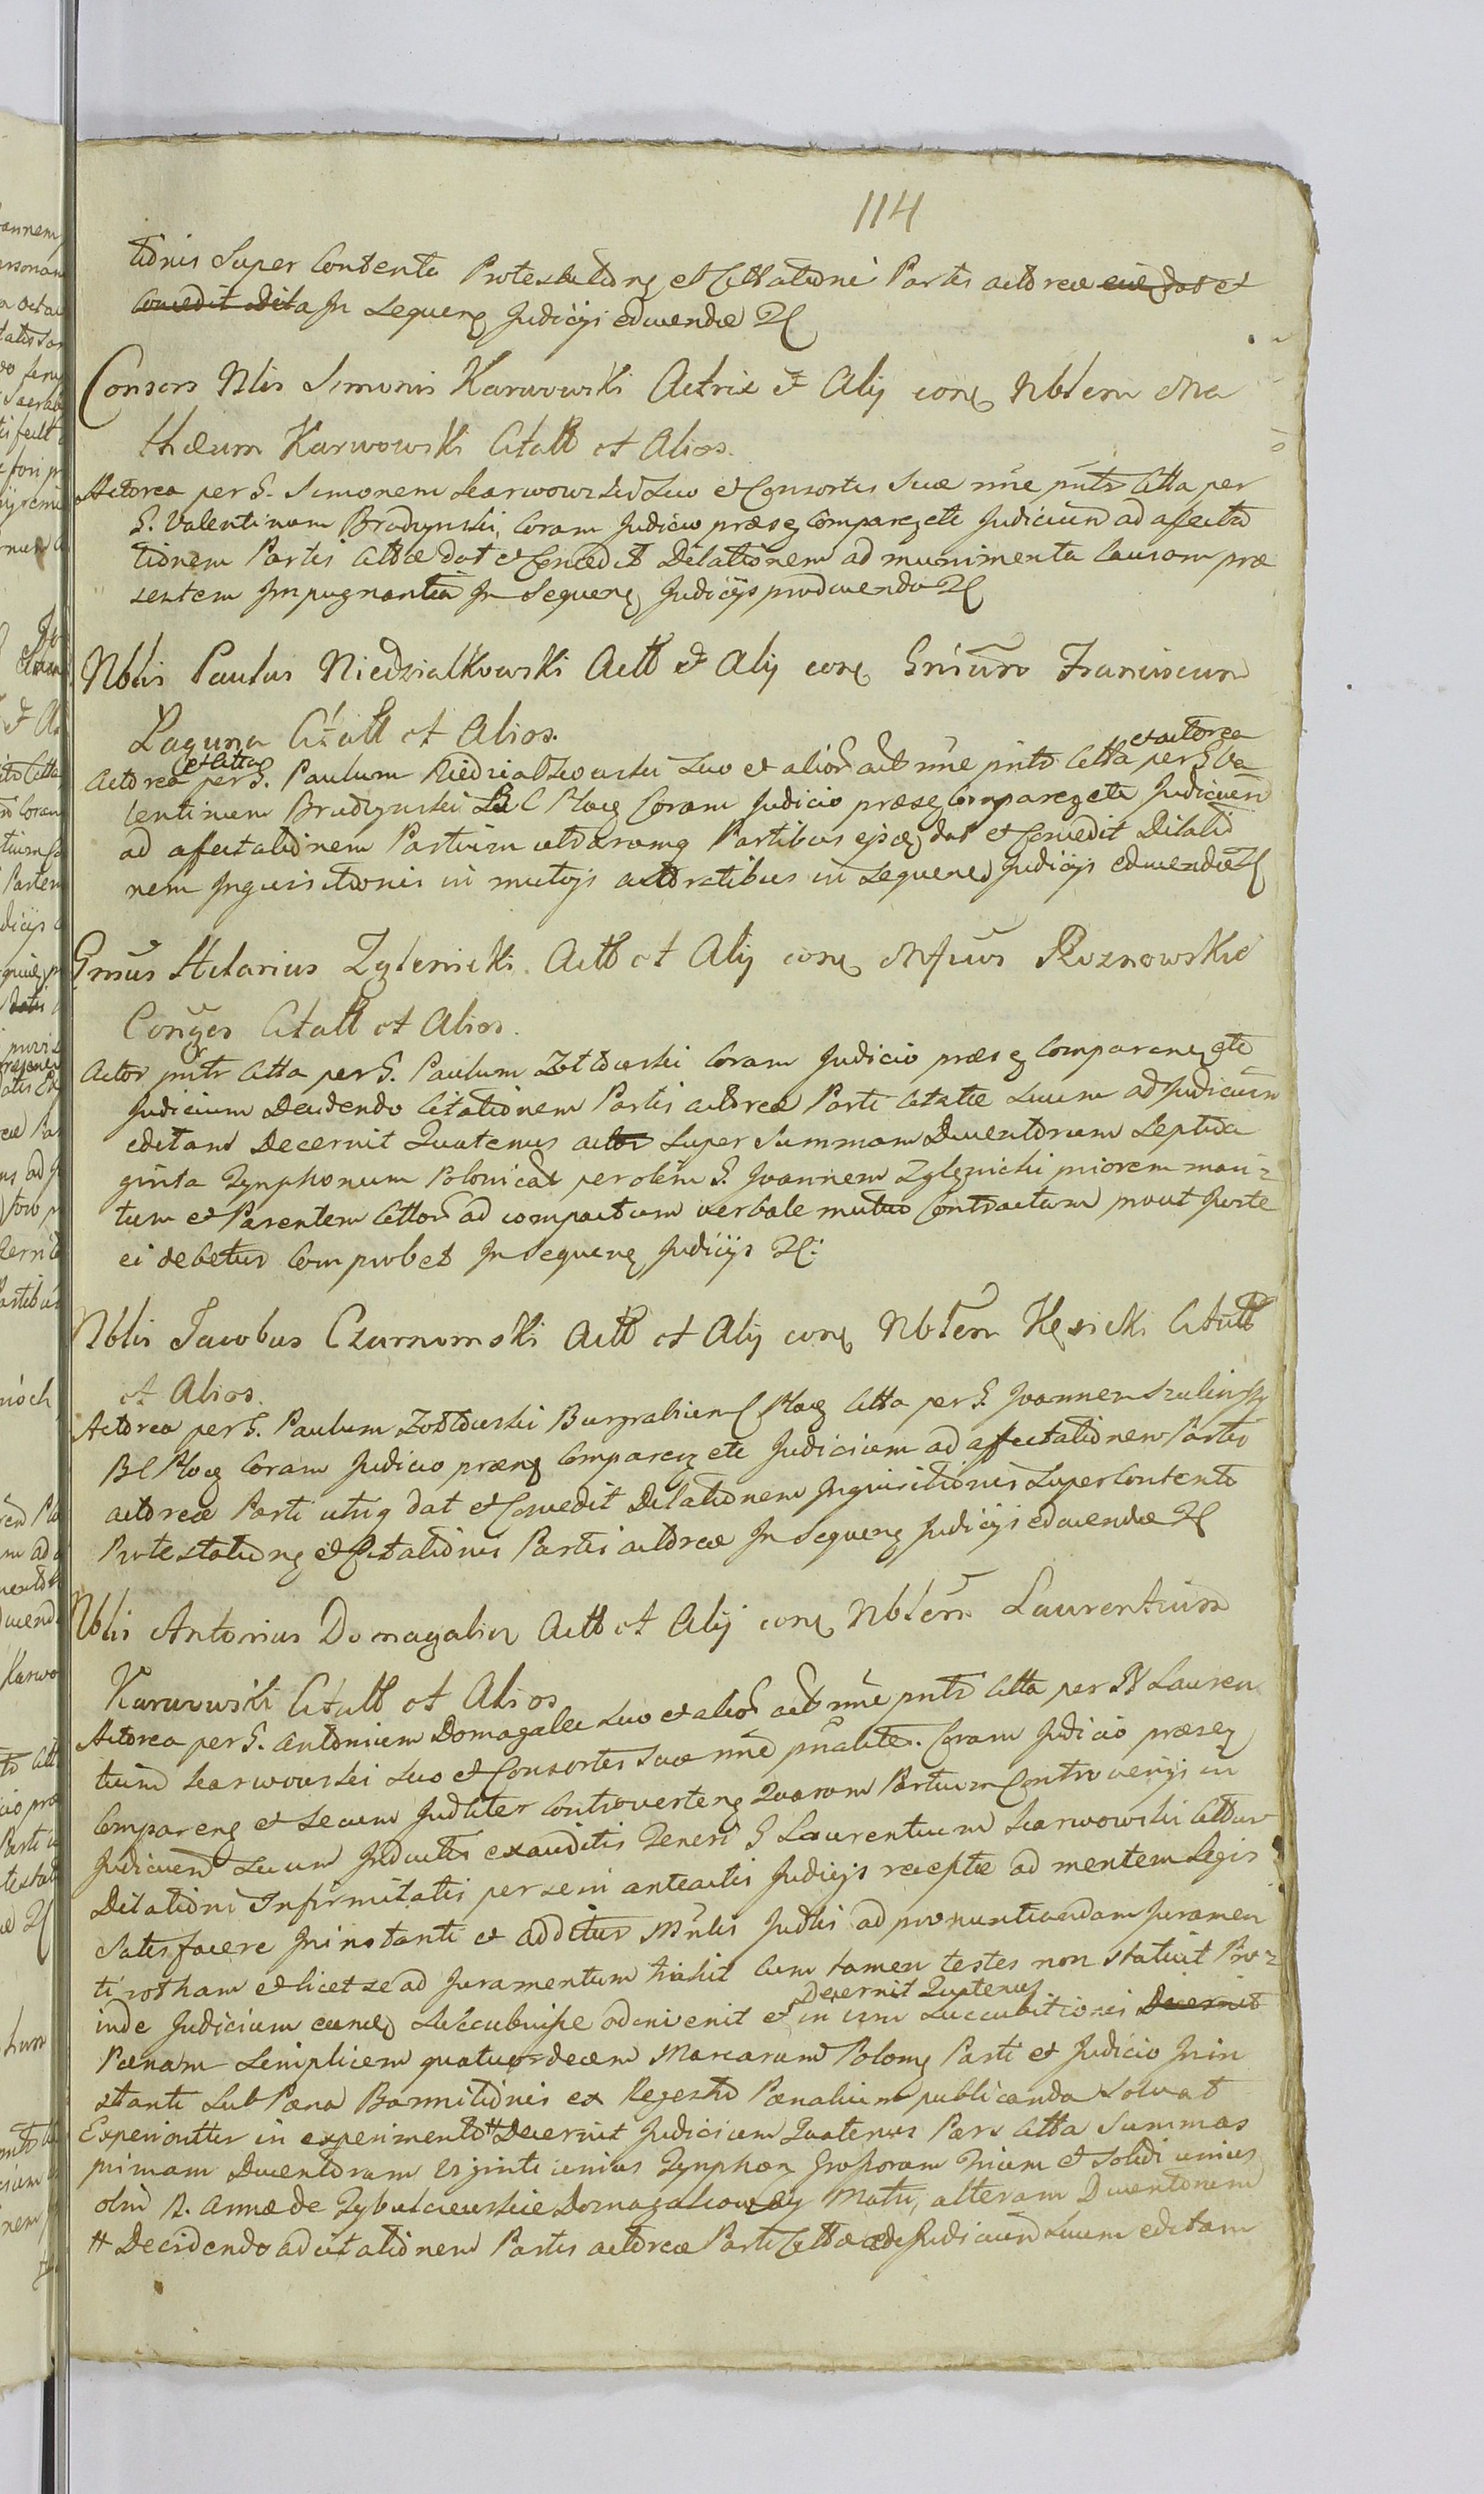 114
tionis Super Contenta Protestationq et Cittationi Partis actoreæ eiie dat et
Concedit dila In Sequenq Judicijs educendæ
Consors Nblis Simonis Karwowski Actrix et Alij conq Nblem Ma
thæum Karwowski Citatt et Alios.
Actorea per G. Simonem Karwowski Suo et Consortis Suæ nne pntr Citta per
G. Valentinum Bradynski, Coram Judicio præsq Comparenq etc Judicium ad afecta
tionem Partis Cittæ dat et Concedit Dilationem ad munimenta Causam præ
sentem Impugnantia In Sequenq Judicijs producenda
Nblis Paulus Niedzialkowski Actt et Alij conq Gnsum Franciscum
Laguna Citatt et Alios.
Actorea et Citta per G. Paulum Niedzialkowski Suo et alior act nne pntr Citta et actorea per G Va
lentinum Bradynski B C Plocq Coram Judicio præsq Comparenq etc Judicium
ad afectationem Partium utrarumq Partibus ijsdq dat et Concedit Dilatio
nem Inquisitionis in mutuis actoratibus in Sequenq Judicijs educendæ
Gnsus Hilarius Zglenicki Actt et Alij conq Mfcus Roznowskie
Conjges Citatt et Alios.
Actor pntr Citta per G. Paulum Zołtowski Coram Judicio præsq Comparenq etc
Judicium Decidendo Citationem Partis actoreæ Parti Citatæ Suum ad Judicium
editam Decernit Quatenus actor Super Summam Ducentorum Septua
ginta Tynphonum Polonical per olim G. Joannem Zglenicki priorem mari
tum et Parentem Cittor ad compactum verbale mutuo Contractam prout Juste
ei debetur Comprobet In Sequenq Judicijs
Nblis Jacobus Czarnomski Actt et Alij conq Nblem Kęsicki Citatt
et Alios.
Actorea per G. Paulum Zołtowski Burgrabium C Plocq Citta per G. Joannem Szulinski
B C Plocq Coram Judicio prænq Comparenq etc Judicium ad affectationem Partis
actoreæ Parti utriq dat et Concedit Dilationem Inquisitionis Super Contento
Protestationq et Citationis Partis actoreæ In Sequenq Judicijs educendæ
Nblis Antonius Domagalia Actt et Alij conq Nblem Laurentium
Karwowski Citatt et Alios
Actorea per G. Antonium Domagalia Suo et alior act nne pntr Citta per N Lauren
tium Karwowski Suo et Consortis Suæ nne pnalite. Coram Judicio præsq
Comparenq et Secum Judliter Controvertenq Quarum Partium Controversijs in
Judicium Suum Inductis exauditis Teneri G Laurentium Karwowski Cittum
Dilationi Infirmitatis per semi anteactis Judicijs receptæ ad mentem Legis
Satisfacere Ininstanti et additur Mnlis Judlis ad pronuntiandam Juramen
ti rotham et licet se ad Juramentum trahit Cum tamen testes non statuit Pro
inde Judicium eumq Succubuisse adinvenit et in vim Succubitionis Decernit Quatenus Decernit
Pœnam Simplicem quatuordecem Marcarum Polonq Parti et Judicio Inin
stanti Sub Pœna Bannitionis ex Regestro Pœnalium publicanda Solvat
Experioutter in experimento # Decernit Judicium Quatenus Pars Citta Summas
primam Ducentorum viginti unius Tynphon Grossorum Trium et Solidi unius
olim N. Annæ de Zybulcewskie Domagalcowey Matri, alteram Ducentorum
# Decidendo ad citationem Partis actoreæ Parti Cittæ ad Judicium Suum editam